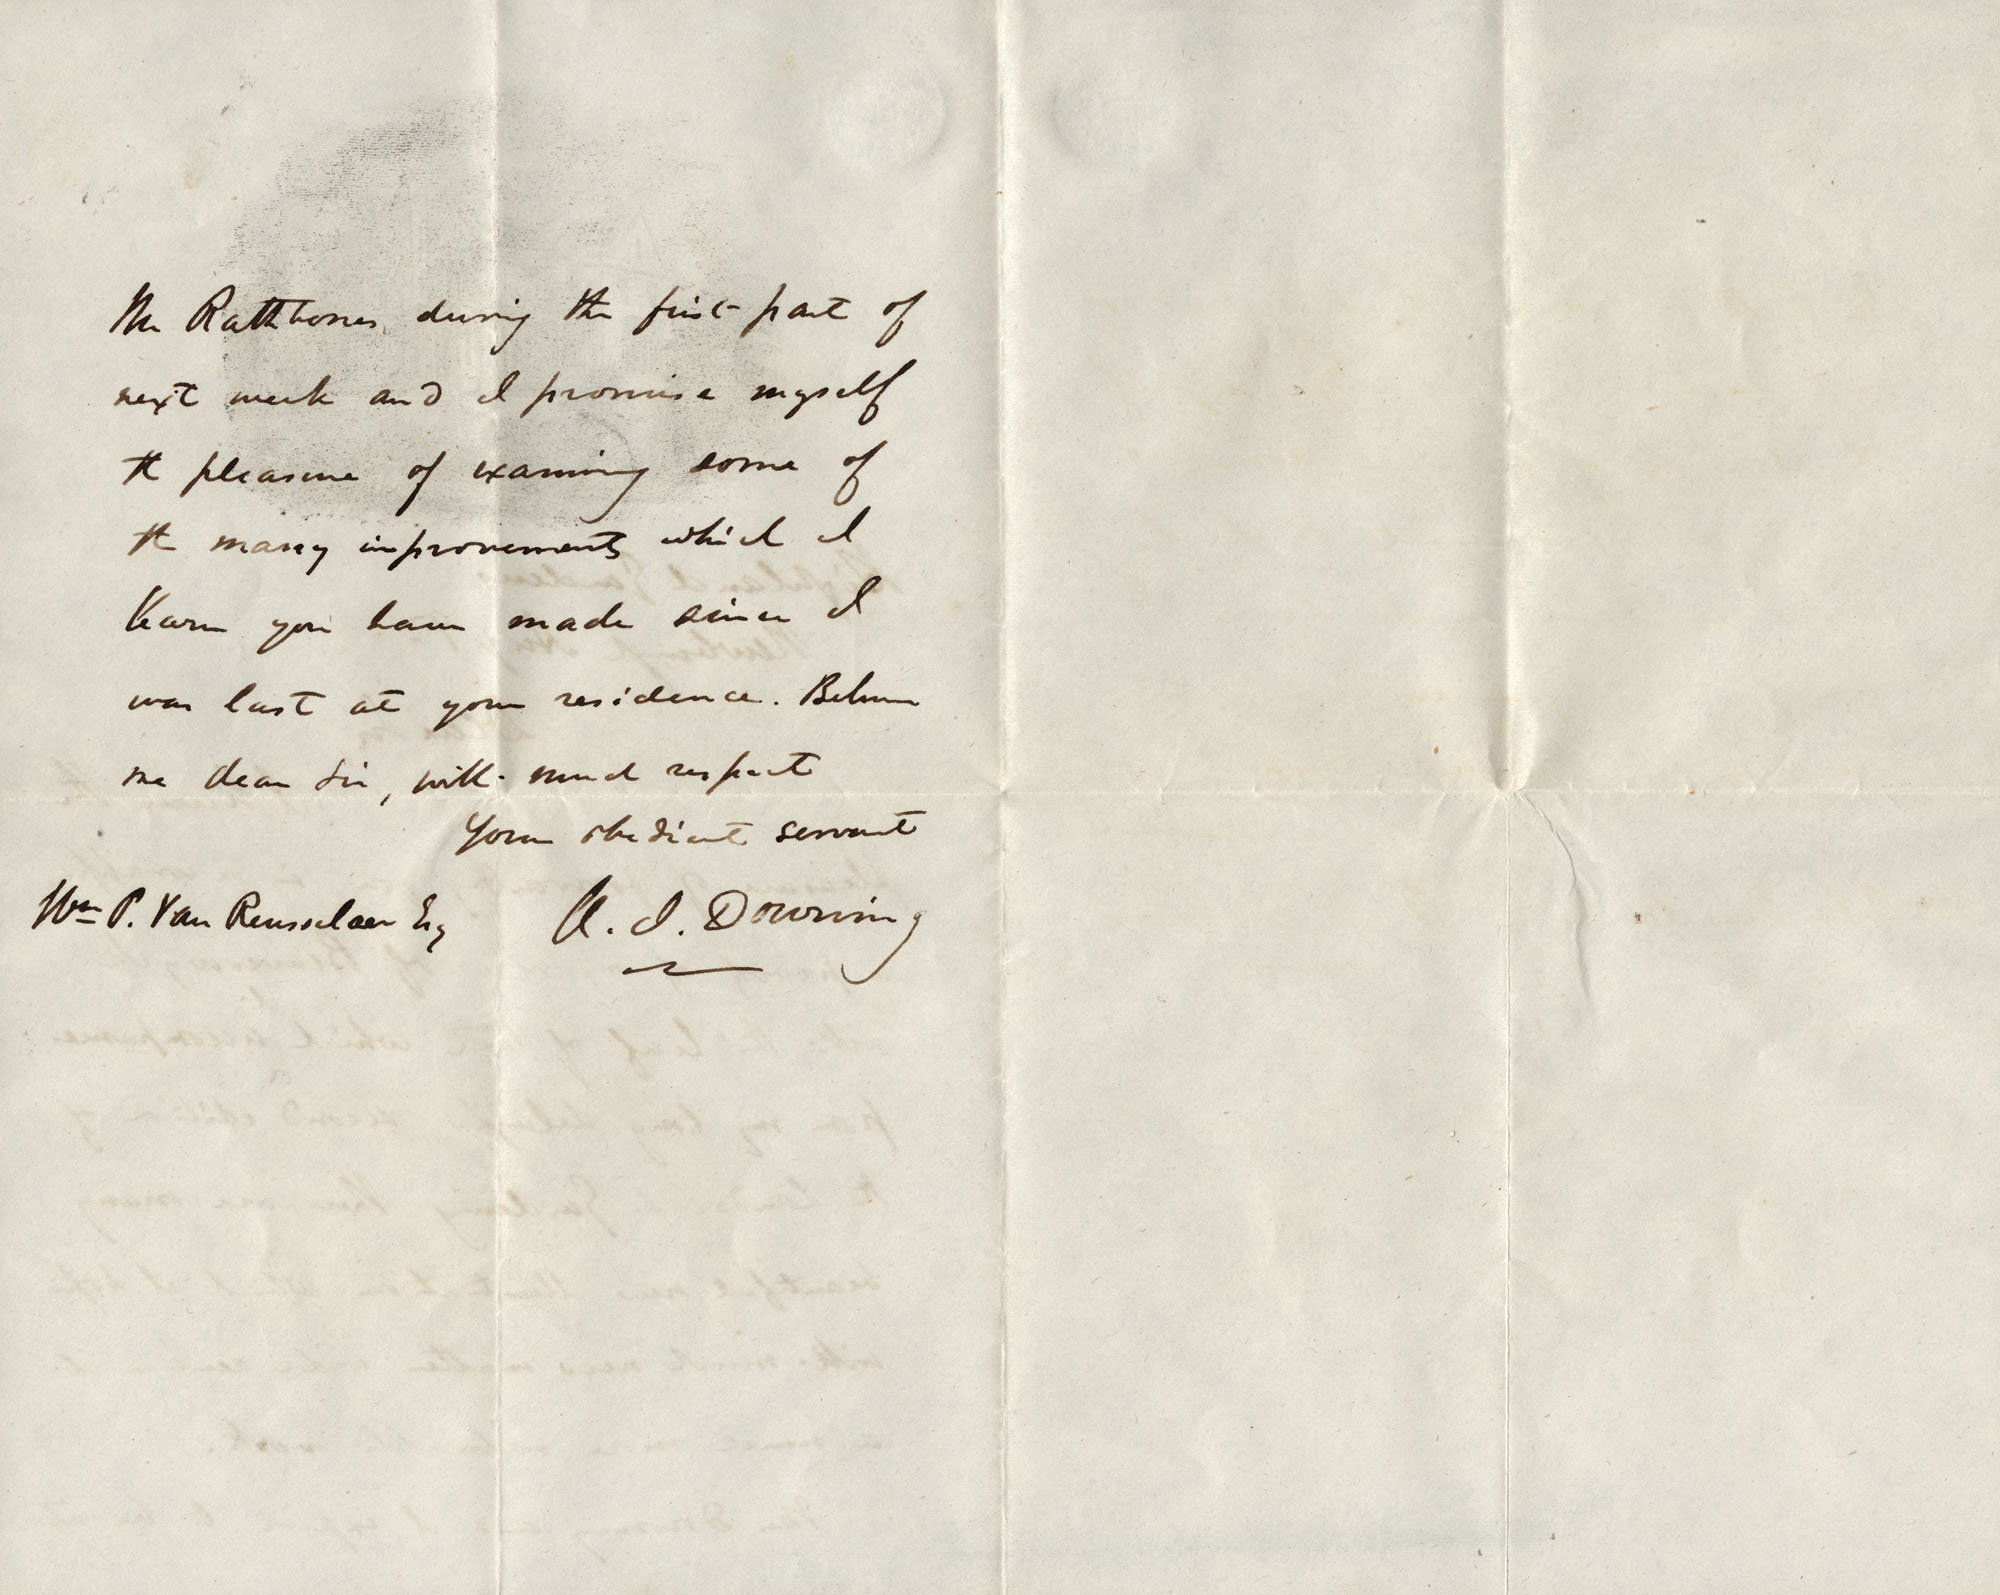 Mr Rathbones during the first part of
next week and I promise myself
the pleasure of examining some of
the many improvements which I
learn you have made since I
was last at your residence. Believe
me dear Sir, with much respect
Your obedient servant
Wm P. Van Rensselaer Esq
A. J. Downing